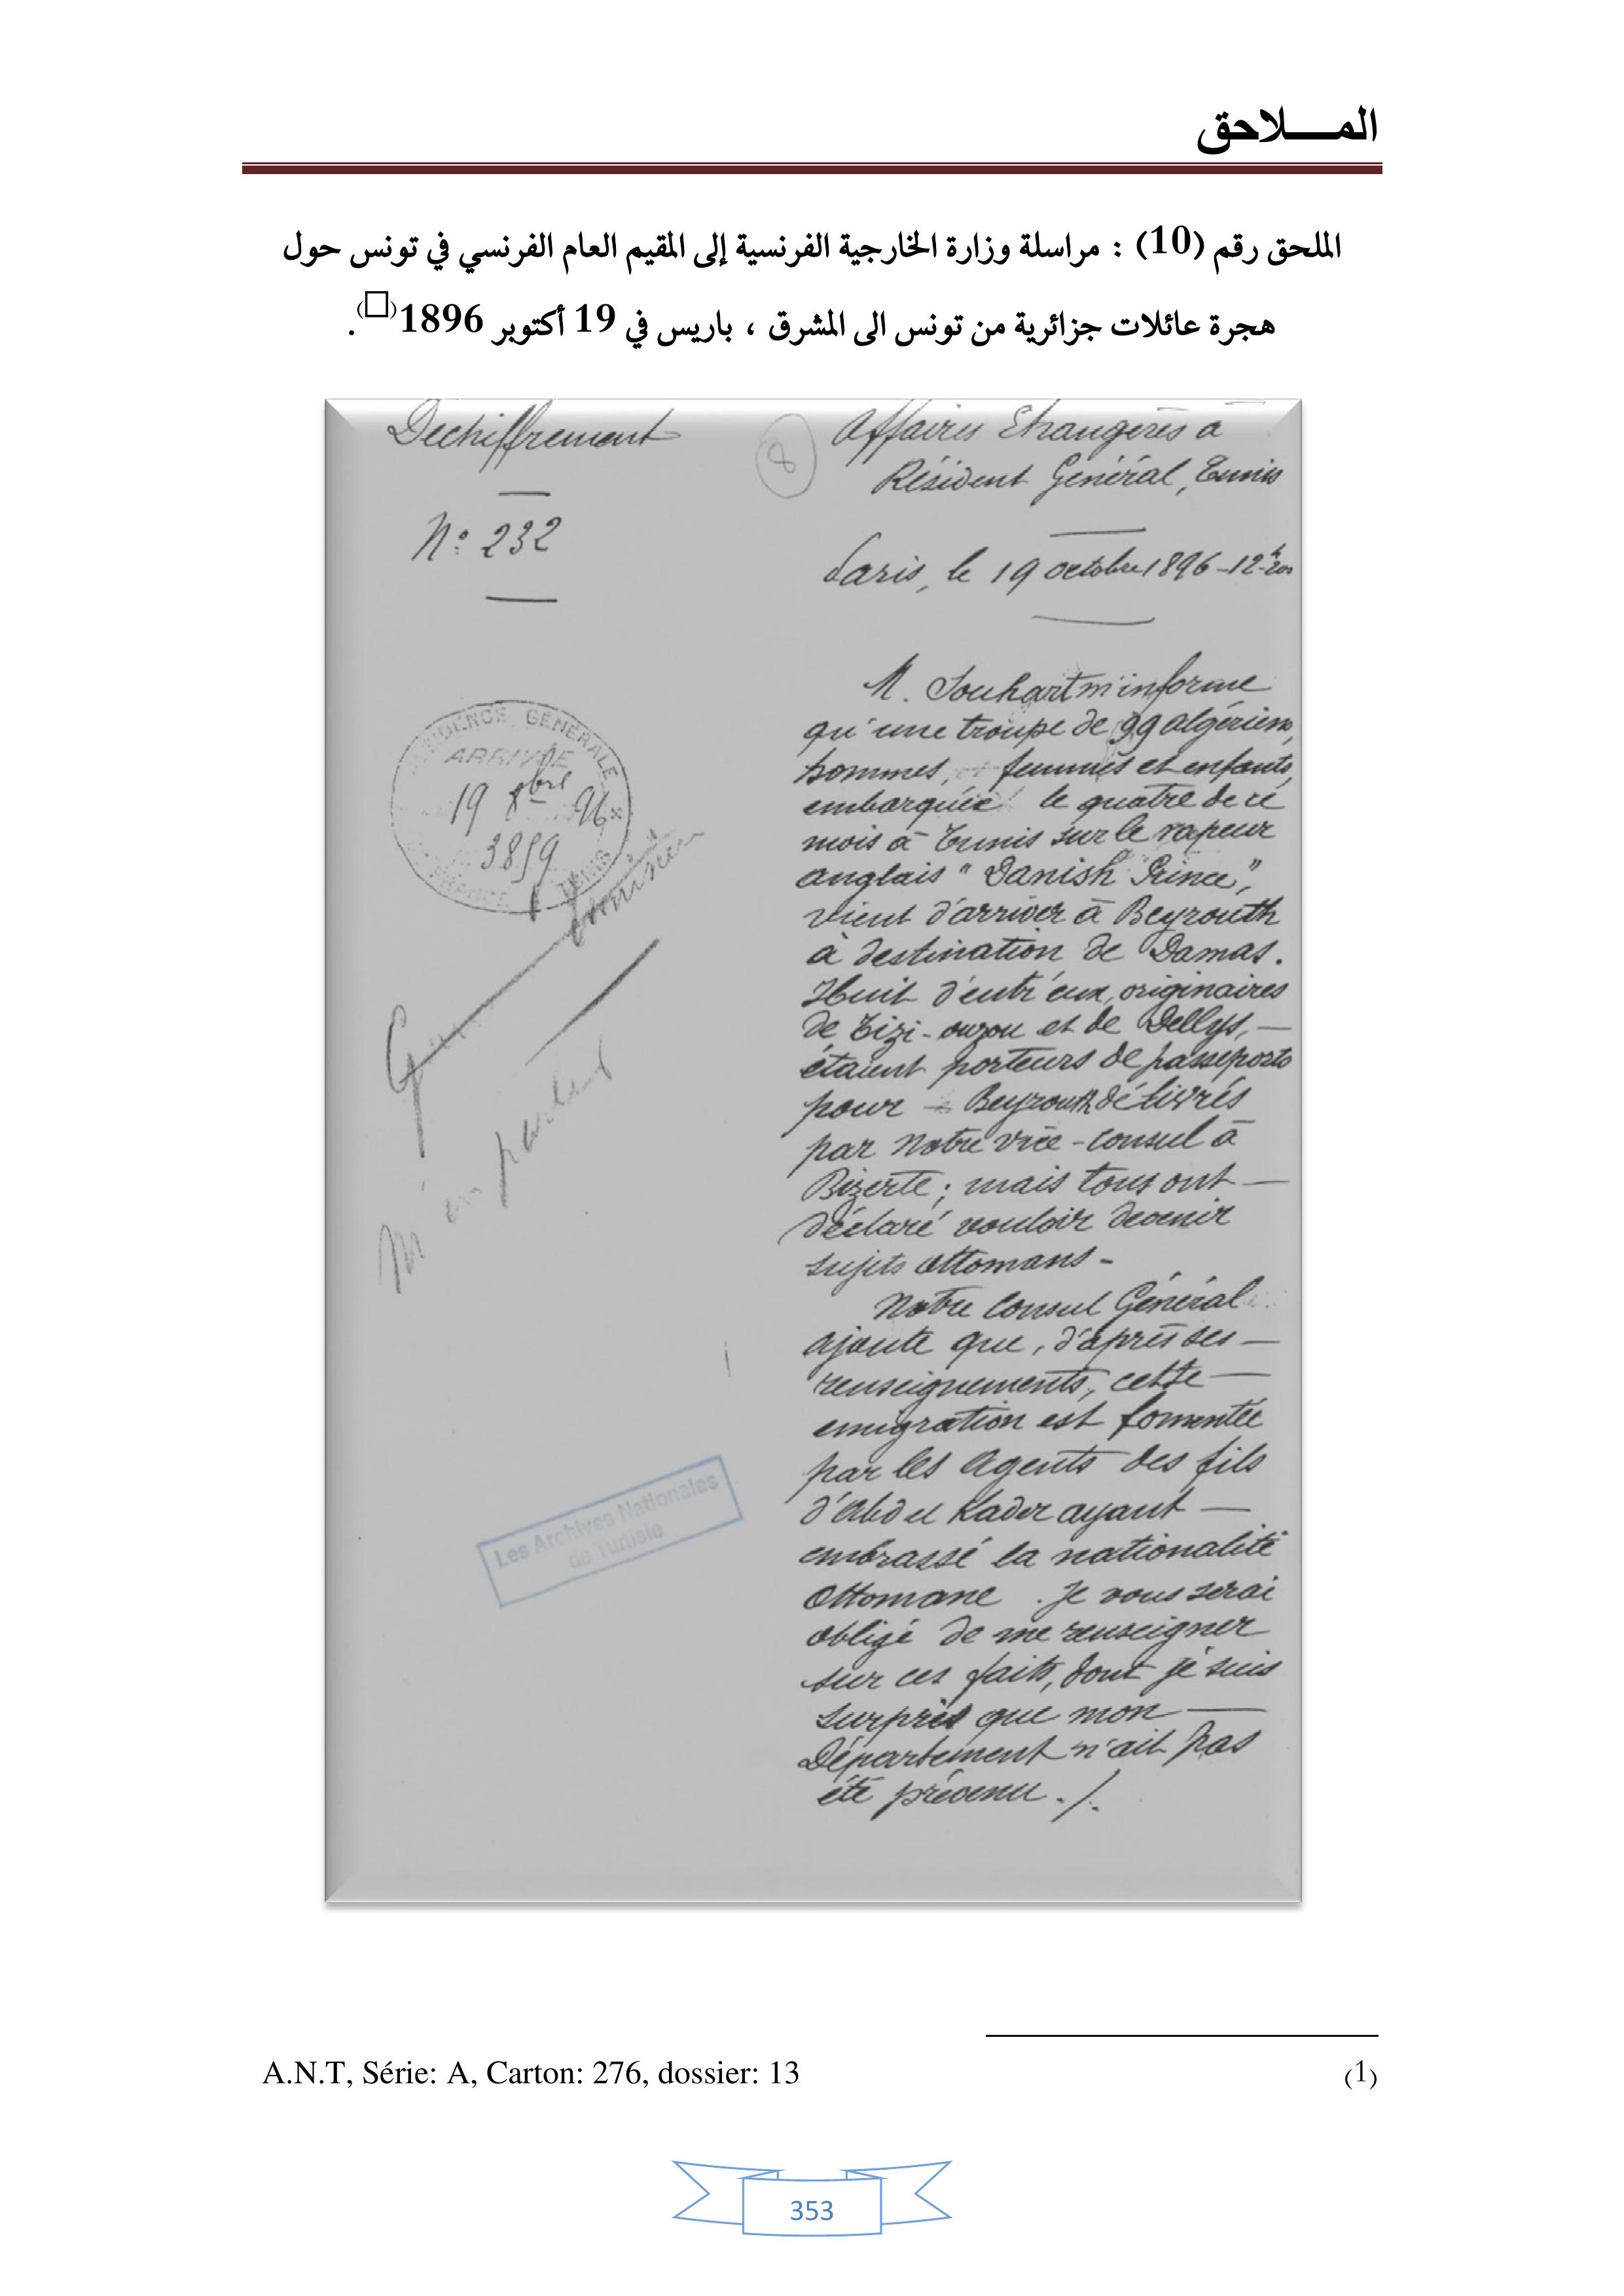 المـــــلاحق
الملحق رقم (10) : مراسلة وزارة الخارجية الفرنسية إلى المقيم العام الفرنسي في تونس حول
هجرة عائلات جزائرية من تونس الى المشرق ، باريس في 19 أكتوبر 1896(□).
Déchiffrement
N° 232
8
Affaires Etrangères à
Résident Général, Tunis
Paris, le 19 octobre 1896 - 12h20m
RÉSIDENCE GÉNÉRALE
ARRIVÉE
19 8bre 96
3859
FRANCE TUNIS
M. Souhart m'informe
qu'une troupe de 99 algériens,
hommes, femmes et enfants,
embarquée le quatre de ce
mois à Tunis sur le vapeur
anglais "Danish Prince",
vient d'arriver à Beyrouth
à destination de Damas.
Huit d'entr'eux, originaires
de Tizi-ouzou et de Dellys, —
étaient porteurs de passeports
pour — Beyrouth délivrés
par notre vice-consul à
Bizerte ; mais tous ont —
déclaré vouloir devenir
sujets ottomans -
Notre Consul Général
ajoute que, d'après ses —
renseignements, cette —
emigration est fomentée
par les Agents des fils
d'Abd el Kader ayant —
embrassé la nationalité
Ottomane . Je vous serai
obligé de me renseigner
sur ces faits, dont je suis
surpris que mon —
Département n'ait pas
été prévenu ./.
Les Archives Nationales
de Tunisie
A.N.T, Série: A, Carton: 276, dossier: 13 (1)
353